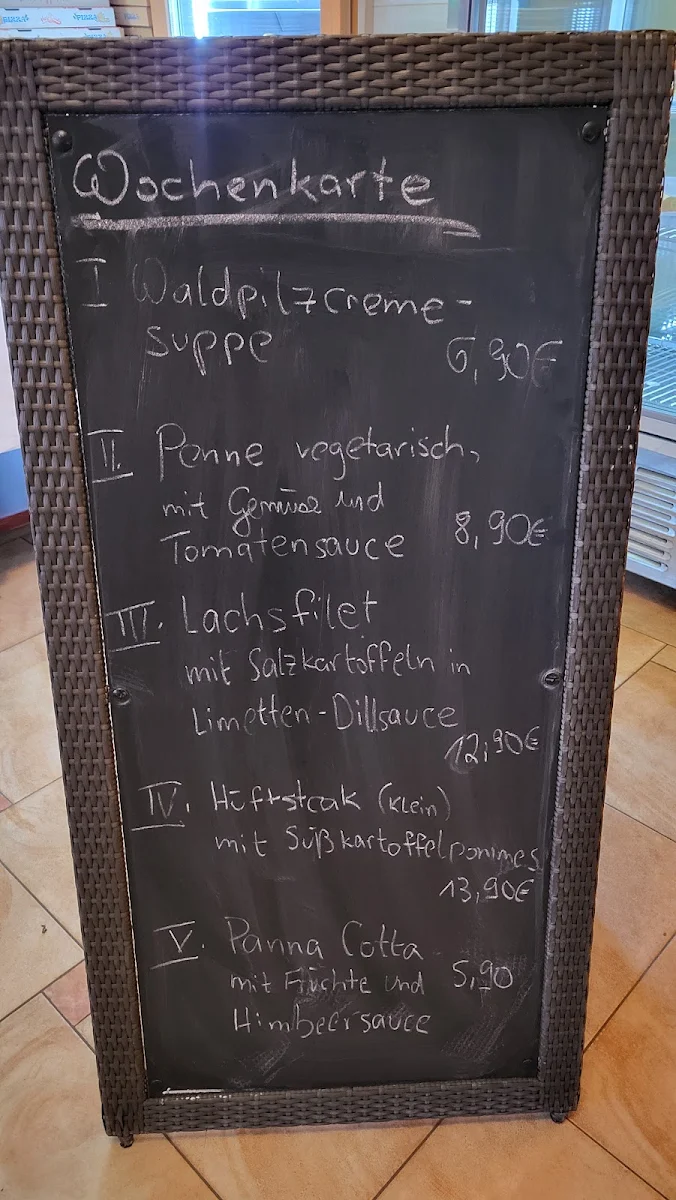 Wochenkarte
I Waldpilzcreme-
suppe 6,90€
II. Penne vegetarisch,
mit Gemüse und
Tomatensauce 8,90€
III. Lachsfilet
mit Salzkartoffeln in
Limetten-Dillsauce
12,90€
IV. Hüftsteak (klein)
mit Süßkartoffelpommes
13,90€
V. Panna Cotta
mit Früchte und 5,90
Himbeersauce